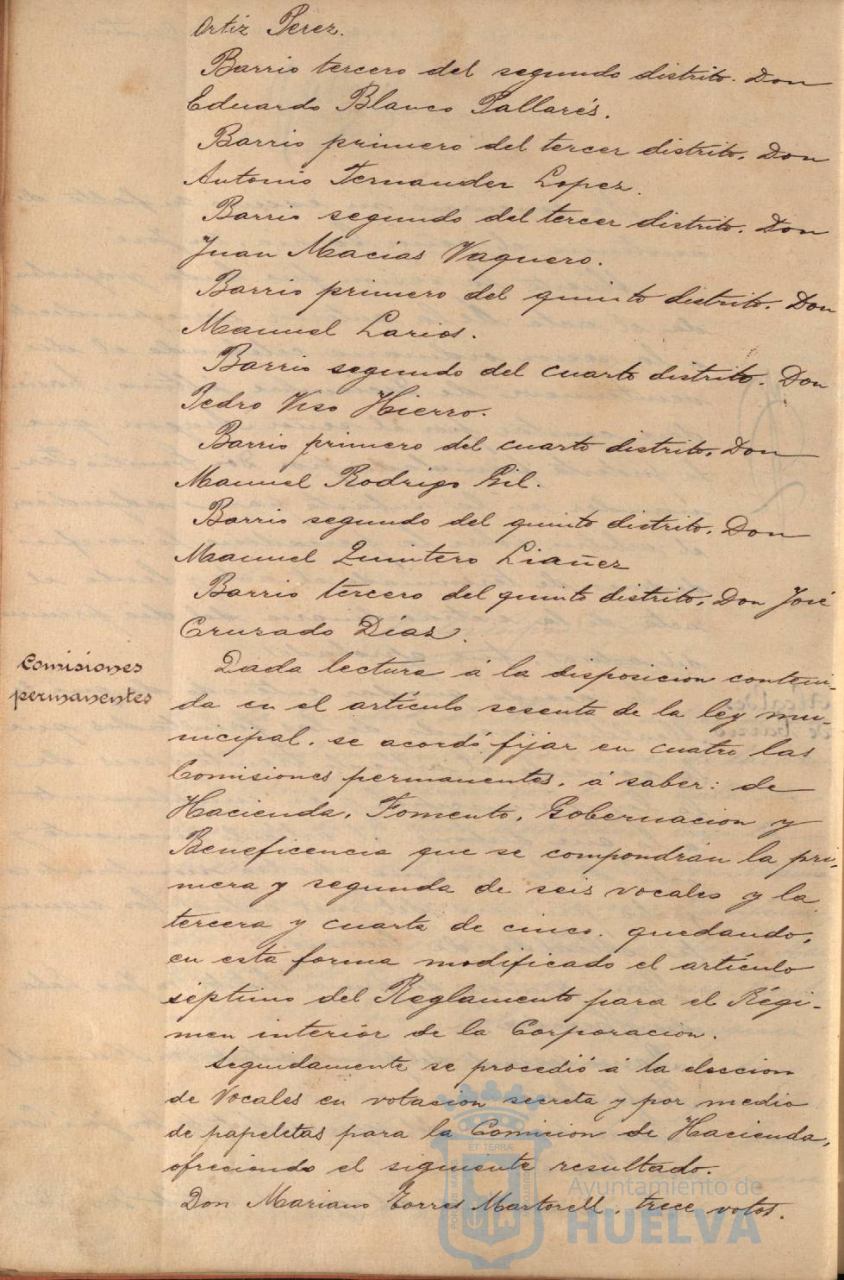 Ortiz Perez.
Barrio tercero del segundo distrito. Don
Eduardo Blanco Pallarés.
Barrio primero del tercer distrito. Don
Antonio Fernandez Lopez.
Barrio segundo del tercer distrito. Don
Juan Macias Vaquero.
Barrio primero del quinto distrito. Don
Manuel Larios.
Barrio segundo del cuarto distrito. Don
Pedro Viso Hierro.
Barrio primero del cuarto distrito. Don
Manuel Rodrigo Gil.
Barrio segundo del quinto distrito. Don
Manuel Quintero Liañez
Barrio tercero del quinto distrito. Don José
Cruzado Díaz.
Comisiones
permanentes
Dada lectura á la disposicion conteni-
da en el artículo sesenta de la ley mu-
nicipal. se acordó fijar en cuatro las
Comisiones permanentes. á saber: de
Hacienda. Fomento. Gobernacion y
Beneficencia que se compondrán la pri-
mera y segunda de seis vocales y la
tercera y cuarta de cinco. quedando,
en esta forma modificado el artículo
séptimo del Reglamento para el Régi-
men interior de la Corporacion.
Seguidamente se procedió á la eleccion
de Vocales en votacion secreta y por medio
de papeletas para la Comision de Hacienda,
ofreciendo el siguiente resultado.
Don Mariano Torres Martorell, trece votos.
Ayuntamiento de
HUELVA